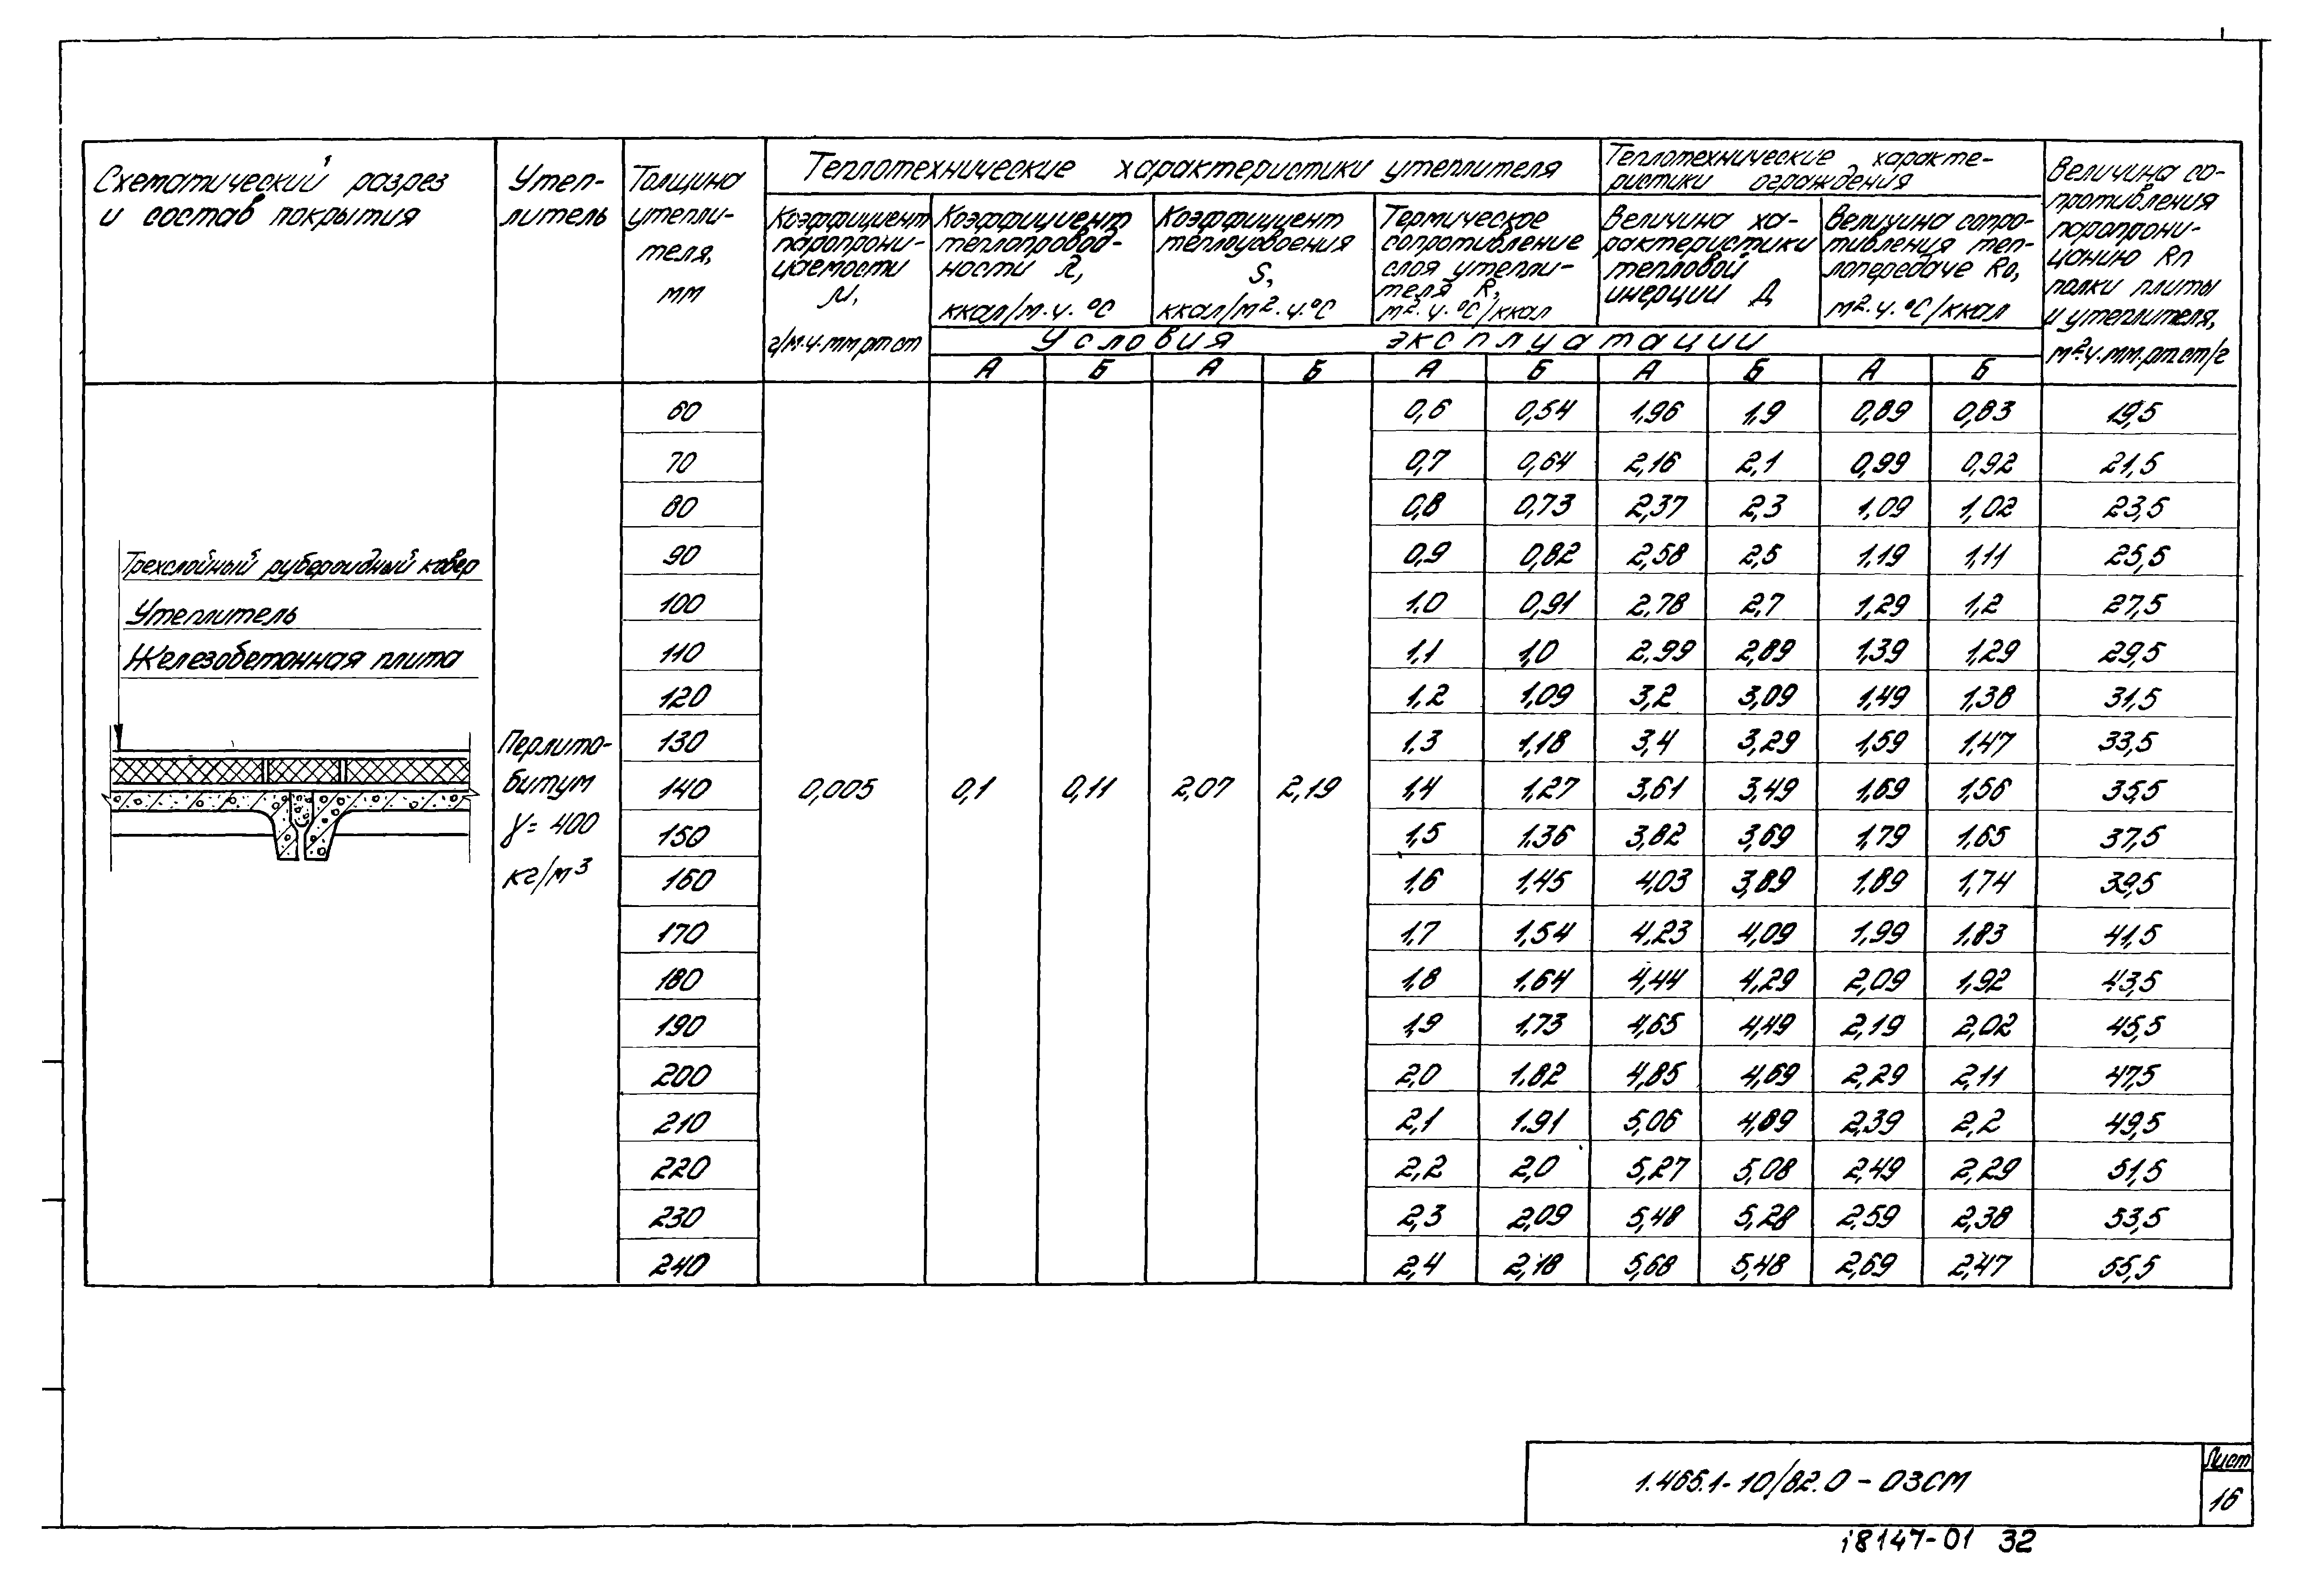 Схематический разрез
и состав покрытия
Утеп-
литель
Толщина
утепли-
теля,
мм
Теплотехнические характеристики утеплителя
Коэффициент
паропрони-
цаемости
μ,
г/м.ч.мм рт ст
Коэффициент
теплопровод-
ности λ,
ккал/м.ч.°С
Коэффициент
теплоусвоения
S,
ккал/м².ч.°С
Термическое
сопротивление
слоя утепли-
теля R,
м².ч.°С/ккал
Теплотехнические характе-
ристики ограждения
Величина ха-
рактеристики
тепловой
инерции Д
Величина сопро-
тивления теп-
лопередаче Rо,
м².ч.°С/ккал
Величина со-
противления
паропрони-
цанию Rп
полки плиты
и утеплителя,
м².ч.мм.рт.ст/г
Условия эксплуатации
А Б А Б А Б А Б А Б
60 0,6 0,54 1,96 1,9 0,89 0,83 19,5
70 0,7 0,64 2,16 2,1 0,99 0,92 21,5
80 0,8 0,73 2,37 2,3 1,09 1,02 23,5
90 0,9 0,82 2,58 2,5 1,19 1,11 25,5
100 1,0 0,91 2,78 2,7 1,29 1,2 27,5
110 1,1 1,0 2,99 2,89 1,39 1,29 29,5
120 1,2 1,09 3,2 3,09 1,49 1,38 31,5
130 1,3 1,18 3,4 3,29 1,59 1,47 33,5
140 0,005 0,1 0,11 2,07 2,19 1,4 1,27 3,61 3,49 1,69 1,56 35,5
150 1,5 1,36 3,82 3,69 1,79 1,65 37,5
160 1,6 1,45 4,03 3,89 1,89 1,74 39,5
170 1,7 1,54 4,23 4,09 1,99 1,83 41,5
180 1,8 1,64 4,44 4,29 2,09 1,92 43,5
190 1,9 1,73 4,65 4,49 2,19 2,02 45,5
200 2,0 1,82 4,85 4,69 2,29 2,11 47,5
210 2,1 1,91 5,06 4,89 2,39 2,2 49,5
220 2,2 2,0 5,27 5,08 2,49 2,29 51,5
230 2,3 2,09 5,48 5,28 2,59 2,38 53,5
240 2,4 2,18 5,68 5,48 2,69 2,47 55,5
Трехслойный рубероидный ковер
Утеплитель
Железобетонная плита
Перлито-
битум
γ = 400
кг/м³
1.465.1-10/82.0 - 03СМ
Лист
16
18147-01 32